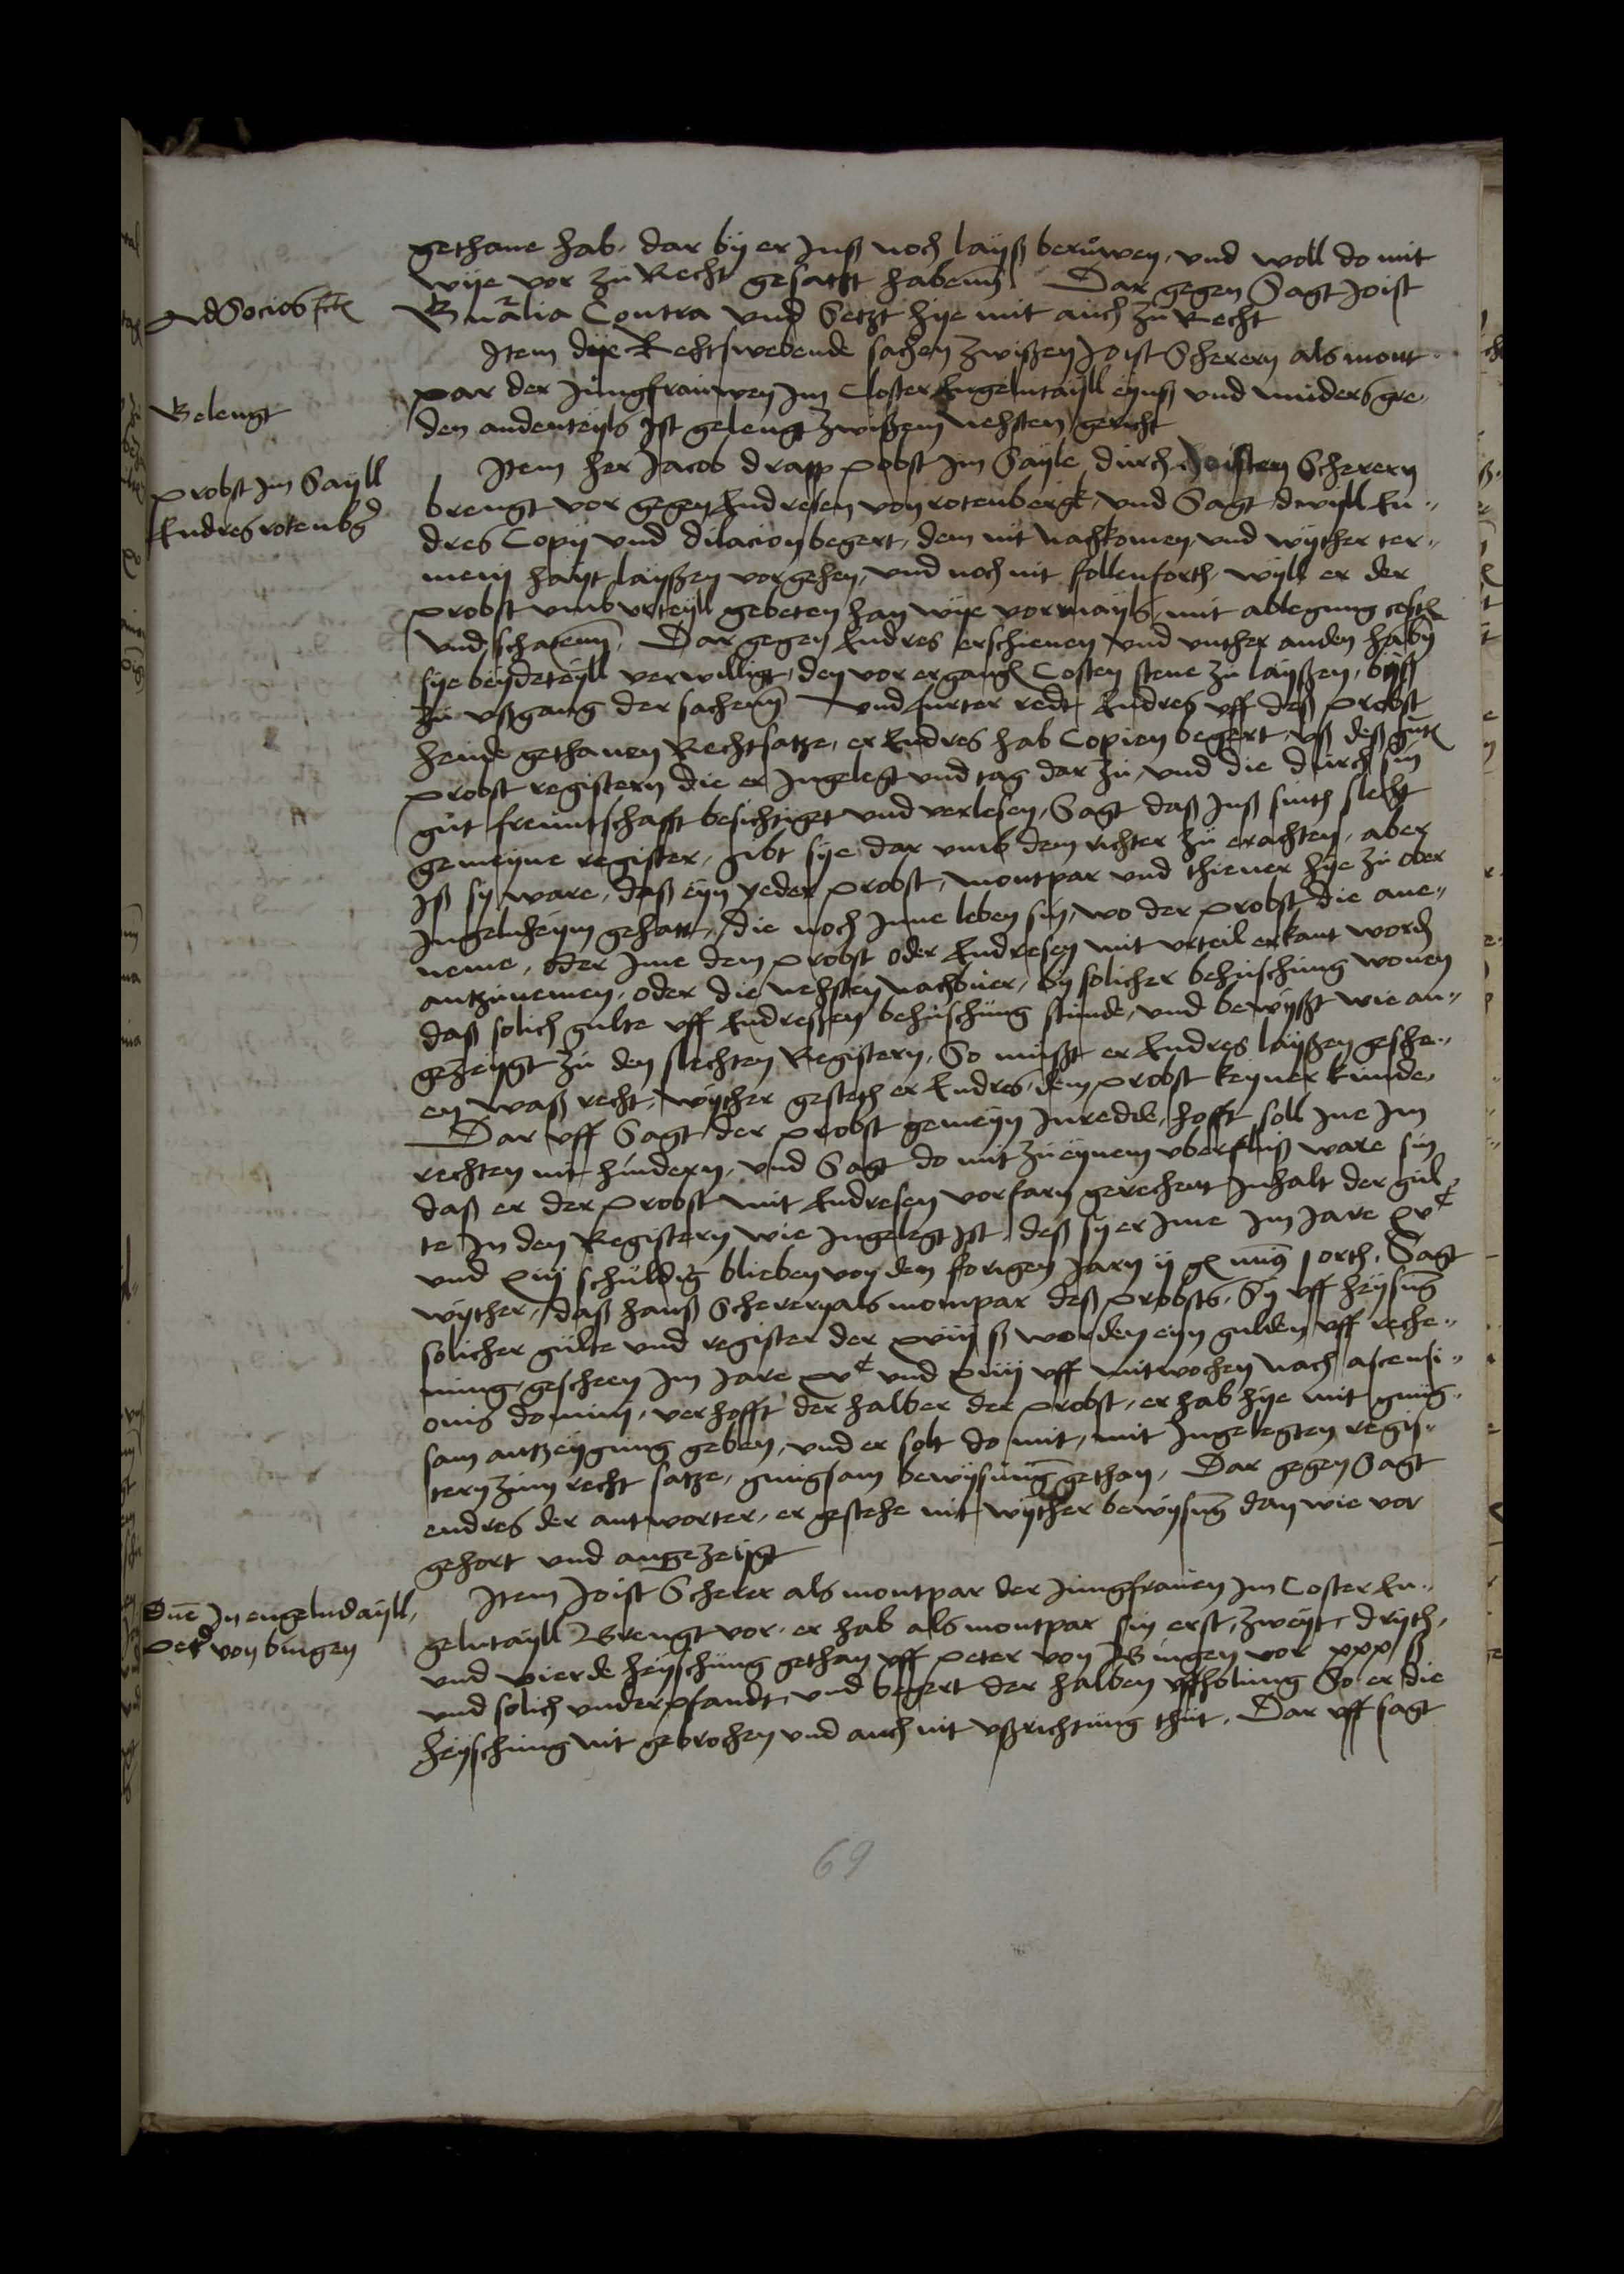 gethane hab, dar by er Inß noch layß beruwen, und woll do mit
wije vor zu Recht gesatzt habenn Dar gegen Sagt Joist
Ad Socios
G​nralia Contra und Setzt hije mit auch zu Recht
Item dije Rechtswebende sachen zwißen Joist Scherern als mont
par der Jungfrauwen Im Closter Engelntayll eynß und
Gelengt
den anderteyls Ist gelengt zwißem nehsten gericht
Item her Jacob drapp probst Im Sayle durch Joisten Scherern
Probst Im Sayll
brengt vor gegen Endresen von rotenbergk, und Sagt, dwyll En„
Endres rotenbg
dres Copy und dilacion begert, dem nit nachkomen, und wyther ter„
meny hayt layßen vorgehen, und noch nit follenforth, wyll er der
probst umb urteyll gebeten han wije vormayls, mit ablegung
und schadenn, Dar gegen Endres erschienen und unther anden
sije beyde teyll verwilligt, den vor ergang Costen stene zu layßen, byß
zu ußgang der sachenn und furter redt Endres uff deß probst
heude gethanen Rechtsatze, er Endres hab Copien begert, uß deß
probst registern die er Ingelegt und tag dar zu, und die durch sin
gut freuntschafft besichtiget und verlesen, Sagt daß Inß sinth slecht
gemeyne register, gibt sije dar umb dem richter zu erachten, aber
Iß sy ware, daß eyn yeder probst, montpar und thiener hije zu ober
Ingelnheym gehatt, die noch Inne leben sin, wo der probst die ane„
neme, oder Ime dem probst oder Endresen mit urteil erkant word
antzunemen, oder die nehsten nachbuer, by solicher behuschung wonen
daß solich gulte uff Endreßen behuschung stunde, und bewyßt wie an„
gezeygt zu den slechten Registern, So mußt er Endres layßen geshe„
en waß recht, wyther gesteth er Endres dem probst keyner kunde,
Dar uff Sagt der probst gemeyn Inredde, hofft soll Ine Im
rechten nit hindern, und Sagt do mit zu eynem uberfluß ware sin
daß er der probst mit Endresen vorfarn gerechent Inhalt der gul„
te In den Registern wie Ingelegt Ist, deß sy er Ime Im Jare xv^c
und xiij schuldig blieben von dem forigen Jarn ij gl 1 orth, Sagt
wyther, daß hanß Scherern als mompar deß probsts, Sy uff heysung
solicher gulte und register der xviij ß worden eyn gulden uff reche„
nung gescheen Im Jare xv^c und xiiij uff mitwochen nach ascensi„
onis domini, verhofft der halber der probst, er hab hije mit gnug„
sam antzeygung geben, und er solt do mit, mit Ingelegten regis„
tern zum recht satze, gnugsam bewysung gethan, Dar gegen Sagt
endres der antworter, er gestehe nit wyther bewysung dan wie vor
gehort und angezeygt
Item Joist Scherer als montpar der Jungfrauen Im Coster En„
Dne In engelndayll,
gelntayll Brengt vor, er hab als montpar sin erst, zweyt, dryth,
Pet von bingen
und vierde heyschung gethan uff Peter von Bingen vor xxx ß
und solich underpfandt, und begert der halben uffholung So er die
heyschung nit gebrochen und auch nit ußrichtung thut, Dar uff sagt
69